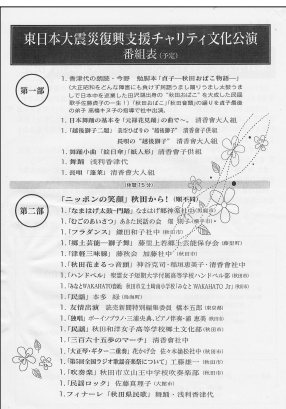 東日本大震災復興支援チャリティ文化公演
番組表(予定)
第一部
1. 香津代の朗読・今野 勉脚本「貞子―秋田おばこ物語―」
(大正昭和をどんな障害にも負けず民謡うまし踊りうまし太鼓うま
して日本中を巡業した田沢湖出身の"秋田おばこ"を大成した民謡
歌手佐藤貞子の一生!)「秋田おばこ」「秋田音頭」の踊りを貞子最後
の弟子 高橋キヌ子の指導で社中出演。
1. 日本舞踊の基本を「元禄花見踊」の曲で～。 清音會大人組
1. 「越後獅子二題」 美空ひばりの"越後獅子" 清音會子供組
長唄の"越後獅子" 清音會大人組
1. 舞踊小曲「絵日傘」「紙人形」清音會子供組
1. 舞踊 浅利香津代
1. 長唄「蓬莱」清音會大人組
(休憩15分)
第二部
「ニッポンの笑顔」秋田から!(順不同)
1.「なまはげ太鼓・門踏」なまはげ郷神楽社(男鹿市)
1.「むごのあいさつ」あきた民話の会
1.「フラダンス」鎌田和子社中(秋田市)
1.「郷土芸能―獅子舞」藤里上若郷土芸能保存会(藤里町)
1.「津軽三味線」藤秋会 加藤社中(秋田市)
1.「秋田花まるっ音頭」神谷克司・稲垣恵美子・清音會社中
1.「ハンドベル」聖霊女子短期大学付属高等学校ハンドベル部(秋田市)
1.「みなとWAKAHATO音戯」秋田市立土崎南小学校「みなとWAKAHATO Jr」(秋田市)
1.「民謡」本多 緑
1. 友情出演 読売新聞特別編集委員 橋本五郎(東京都)
1.「独唱」ボーイソプラノ・三浦央典、ピアノ伴奏・浦 恵美(秋田市)
1.「民謡」秋田和洋女子高等学校郷土文化部(秋田市)
1.「三百六十五歩のマーチ」清音會社中
1.「大正琴・ギター二重奏」花かげ会 佐々木謙松社中(秋田市)
1.「第5回全国ラジオ歌謡音楽祭について」工藤雄一(秋田市)
1.「吹奏楽」秋田市立山王中学校吹奏楽部(秋田市)
1.「民謡ロック」佐藤真理子(大館市)
1. フィナーレ「秋田県民歌」舞踊・浅利香津代